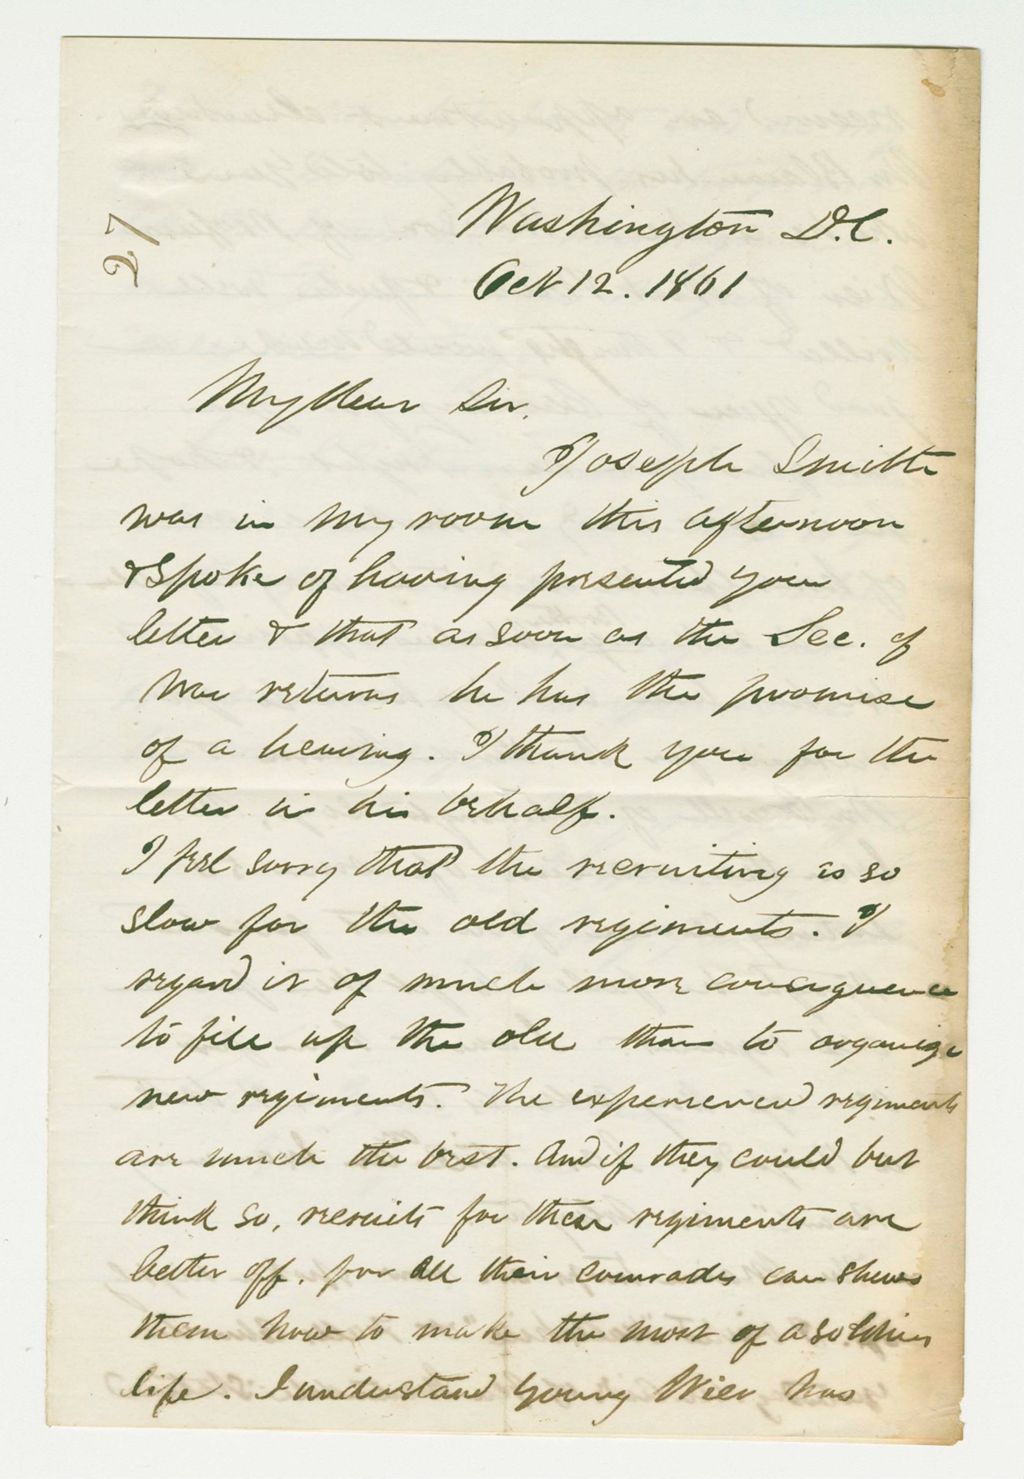 27
Washington D.C.
Oct 12. 1861
My dear Sir.
Joseph Smith
was in my room this afternoon
& spoke of having presented your
letter & that as soon as the Sec. of
War returns he has the promise
of a hearing. I thank you for the
letter in his behalf.
I feel sorry that the recruiting is so
slow for the old regiments. I
regard it of much more consequence
to fill up the old than to organize
new regiments. The experienced regiments
are much the best. And if they could but
think so, recruits for these regiments are
better off. for all their comrades can shew
them how to make the most of a soldiers
life. I understand young Wier has